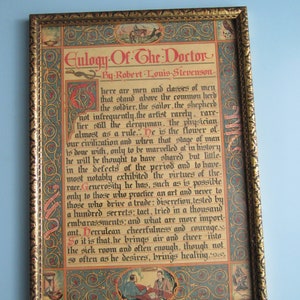 Eulogy·Of·The·Doctor
By·Robert·Louis·Stevenson
There are men and classes of men
that stand above the common herd
the soldier, the sailor, the shepherd
not infrequently the artist rarely, rare-
lier still the clergyman, the physician
almost as a rule. He is the flower of
our civilization and when that stage of man
is done with, only to be marvelled at in history
he will be thought to have shared but little
in the defects of the period and to have
most notably exhibited the virtues of the
race. Generosity he has, such as is possible
only to those who practice an art and never to
those who drive a trade; discretion, tested by
a hundred secrets; tact, tried in a thousand
embarassments; and what are more import-
ant, Herculean cheerfulness and courage.
So it is that he brings air and cheer into
the sick room and often enough, though not
so often as he desires, brings healing.